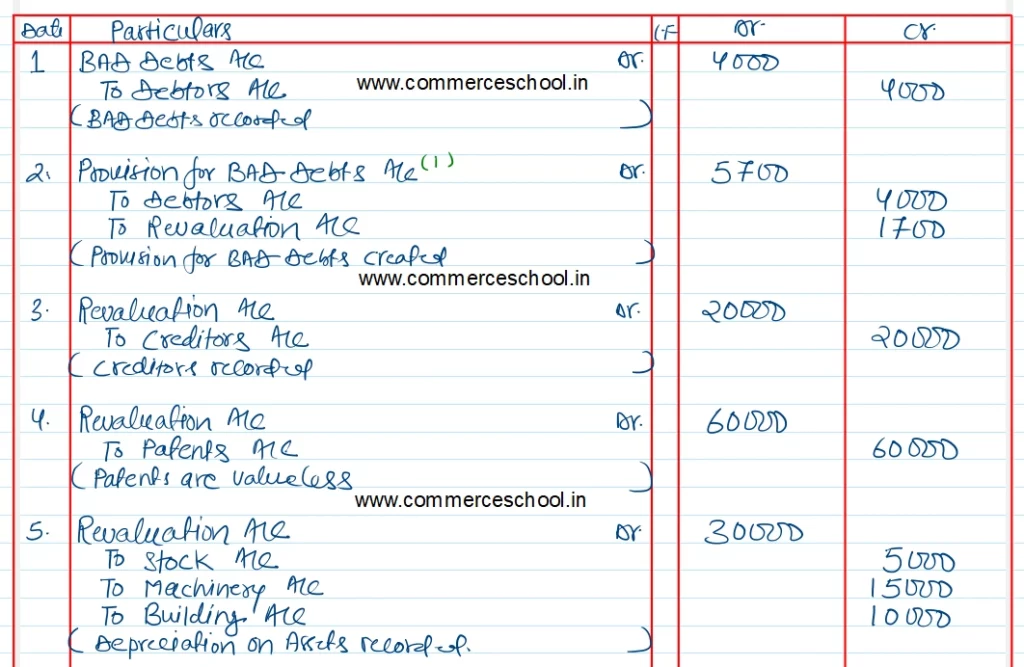 Date Particulars L.F Dr. Cr.
1 BAD Debts A/c Dr. 4000
To Debtors A/c 4000
www.commerceschool.in
(BAD Debts recorded)
2. Provision for BAD Debts A/c (1) Dr. 5700
To Debtors A/c 4000
To Revaluation A/c 1700
(Provision for BAD Debts created)
www.commerceschool.in
3. Revaluation A/c Dr. 20000
To Creditors A/c 20000
(Creditors recorded)
4. Revaluation A/c Dr. 60000
To Patents A/c 60000
(Patents are valueless)
www.commerceschool.in
5. Revaluation A/c Dr. 30000
To Stock A/c 5000
To Machinery A/c 15000
To Building A/c 10000
(Depreciation on Assets recorded.)